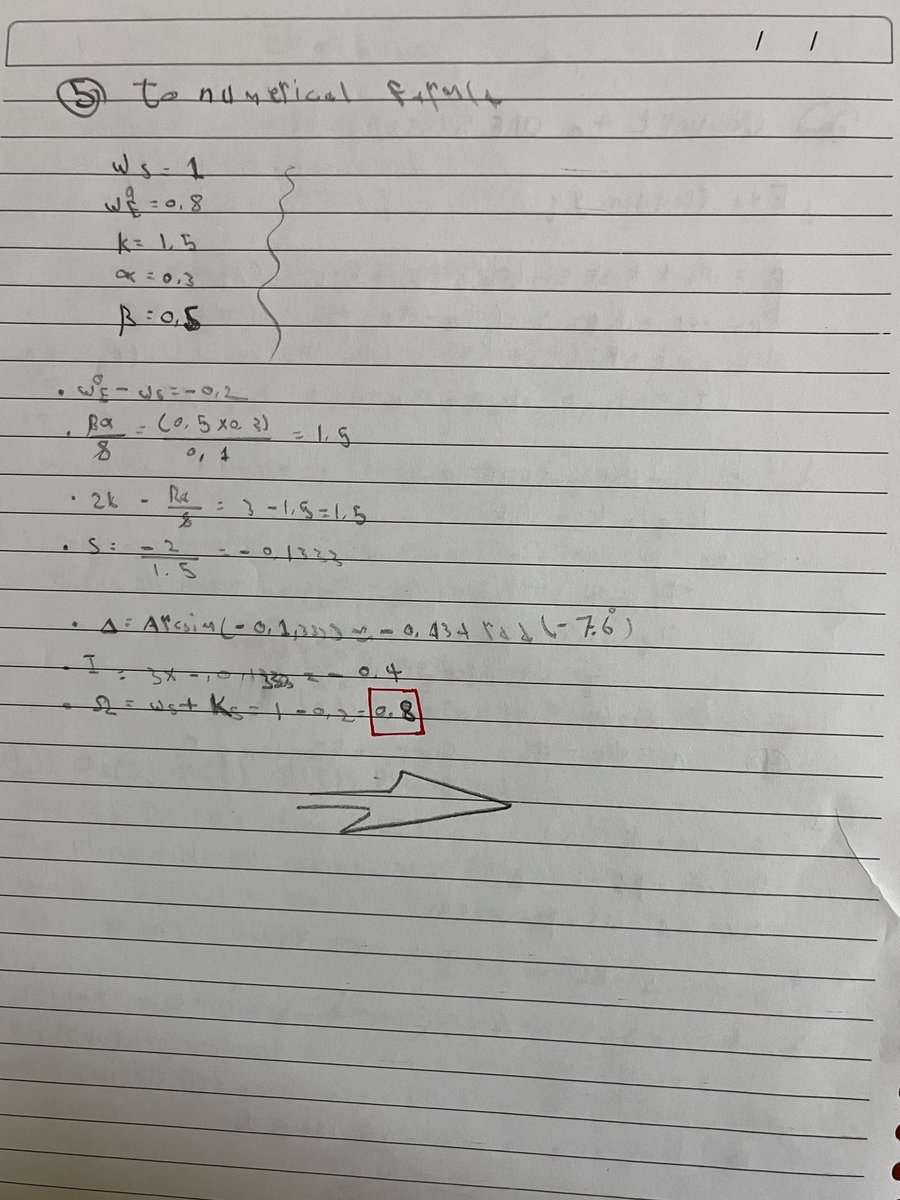 / /
⑤ to numerical
ωs = 1
ω°E = 0,8
K = 1,5
α = 0,3
β = 0,5
• ω°E - ωs = -0,2
• βα/8 = (0,5 x 0.3)/0,1 = 1.5
• 2k - βα/8 = 3 - 1,5 = 1.5
• S = -2/1.5 = -0,1333
• Δ = Arcsin(-0,1,333) ≈ -0,134 rad (-7.6°)
• I = 3x -,0,1333 = - 0.4
• Ω = ωs + Ks = 1 - 0,2 = 0.8